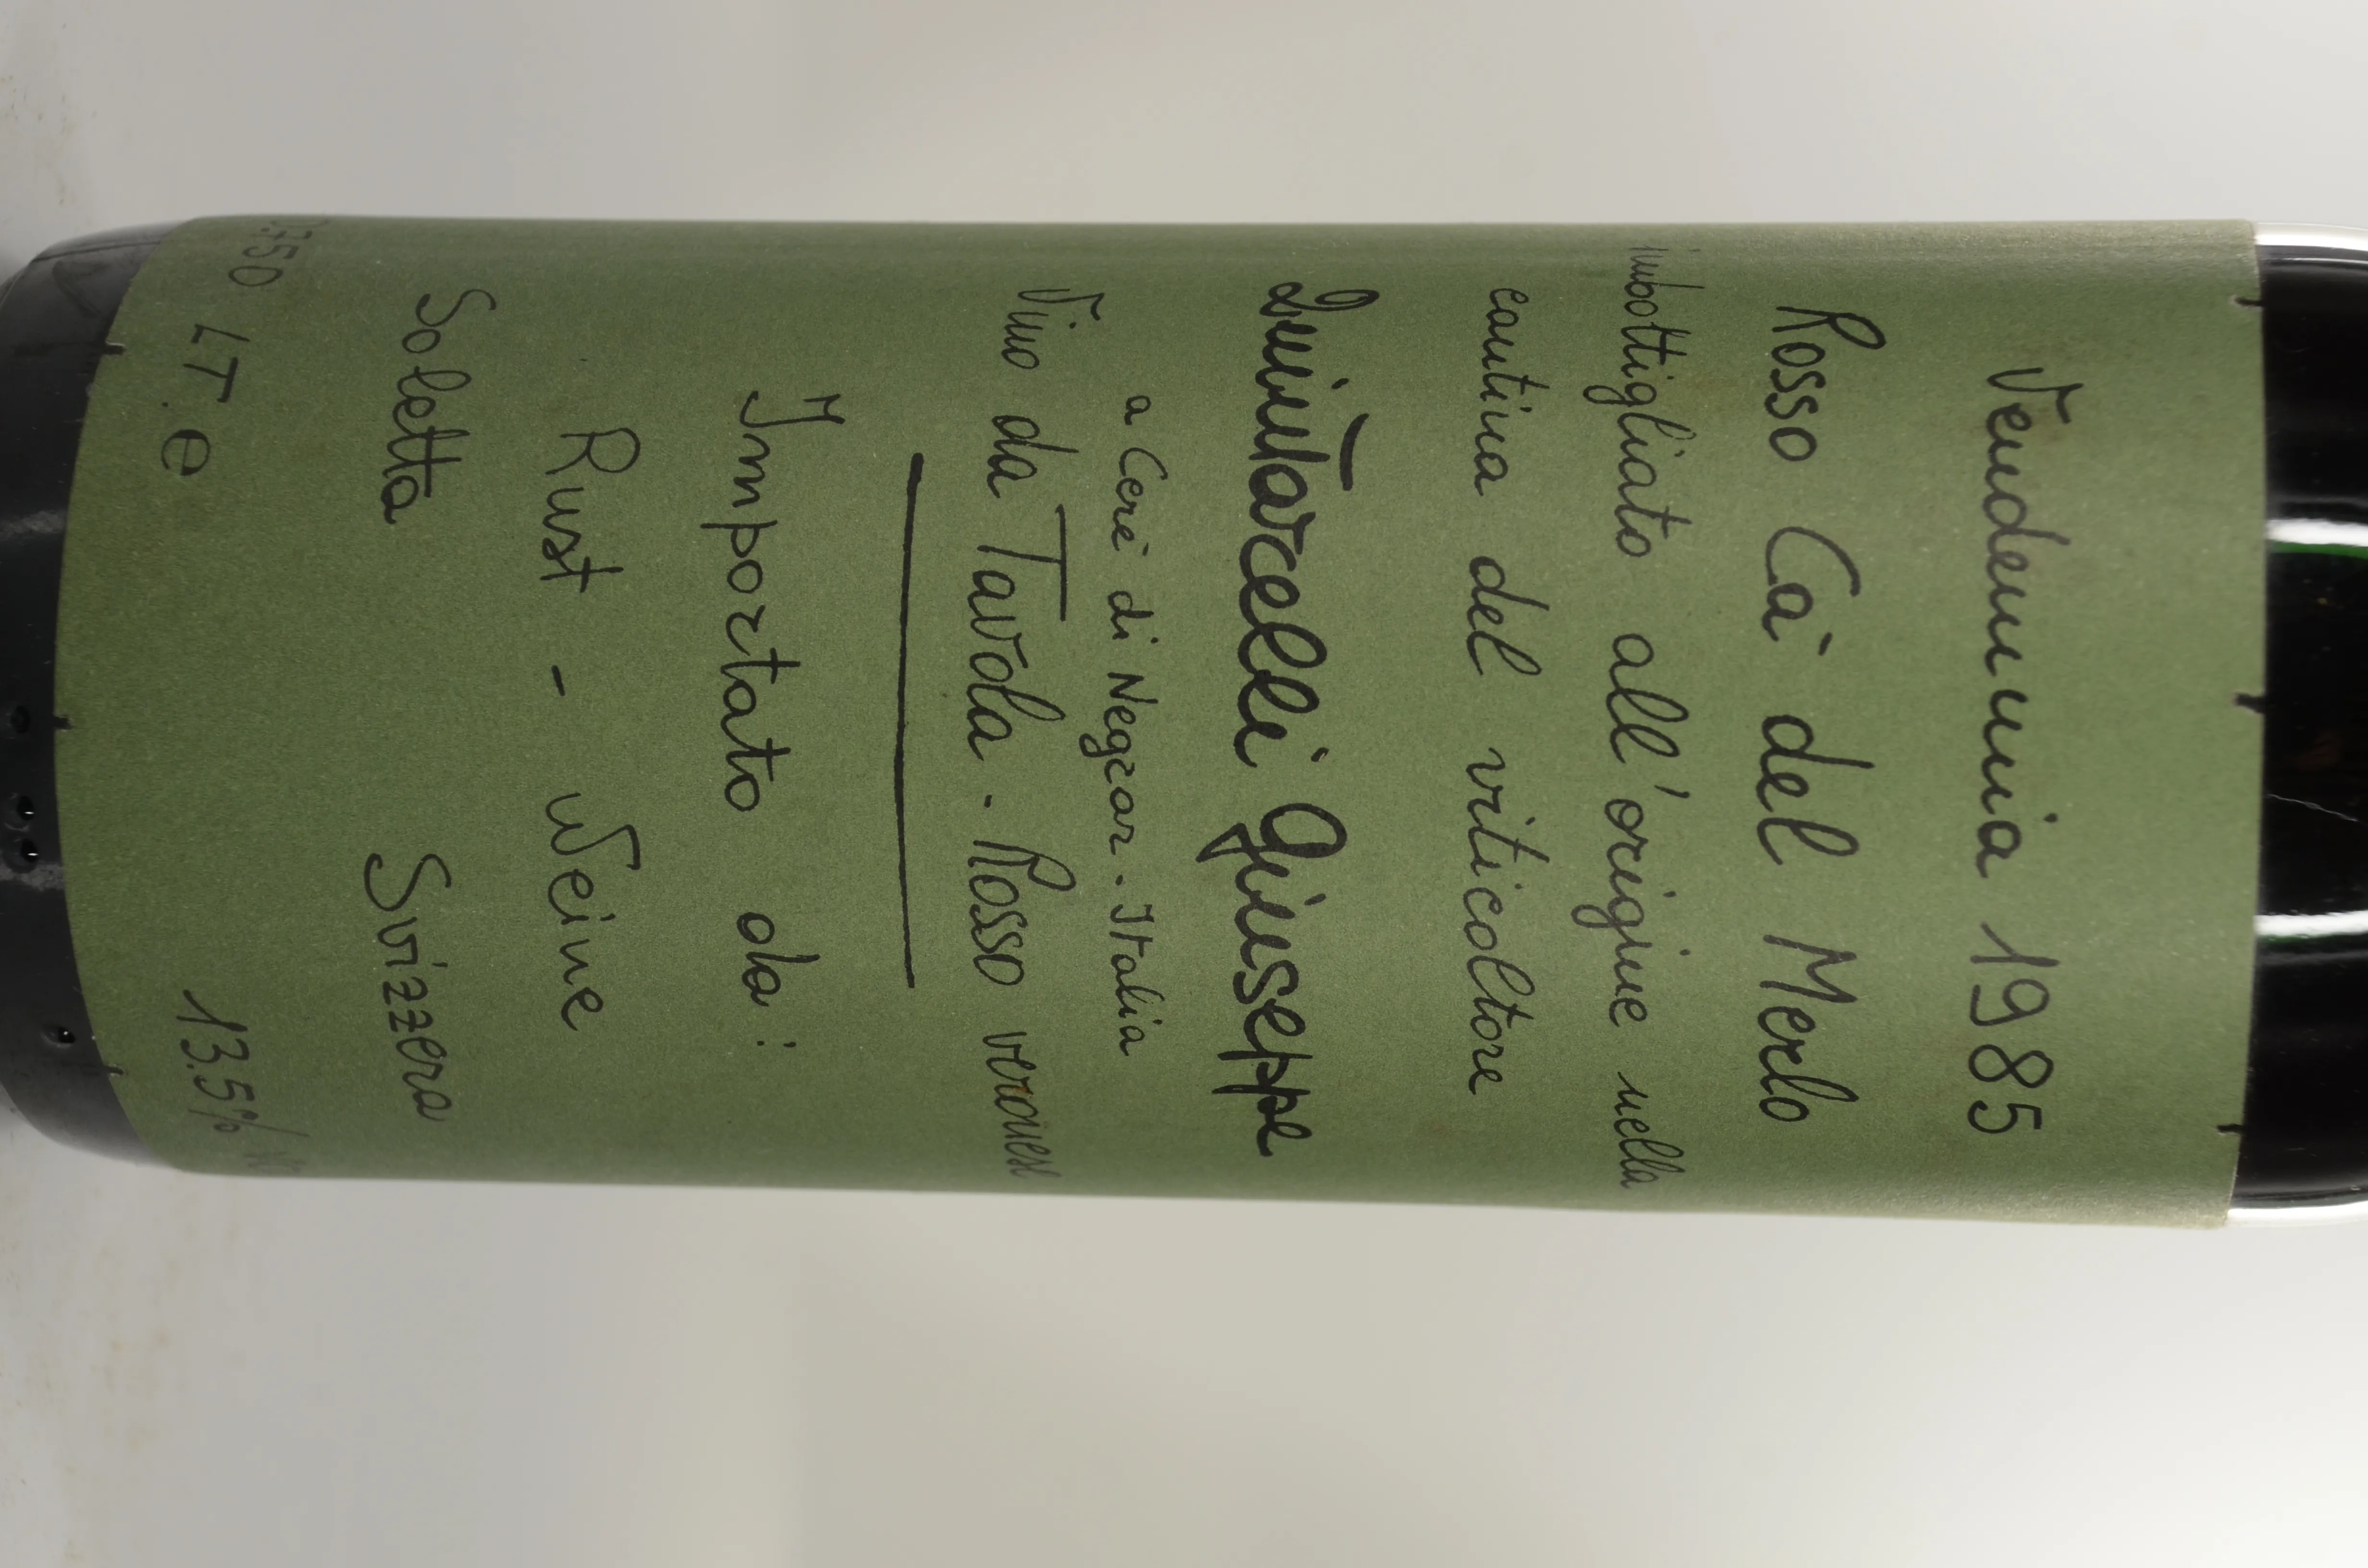 Vendemmia 1985
Rosso Ca' del Merlo
imbottigliato all'origine nella
cantina del viticoltore
Quintarelli Giuseppe
a Cerè di Negrar - Italia
Vino da Tavola - Rosso veronese
Importato da:
Rust - Weine
Soletta Svizzera
.750 LT. e 13.5%